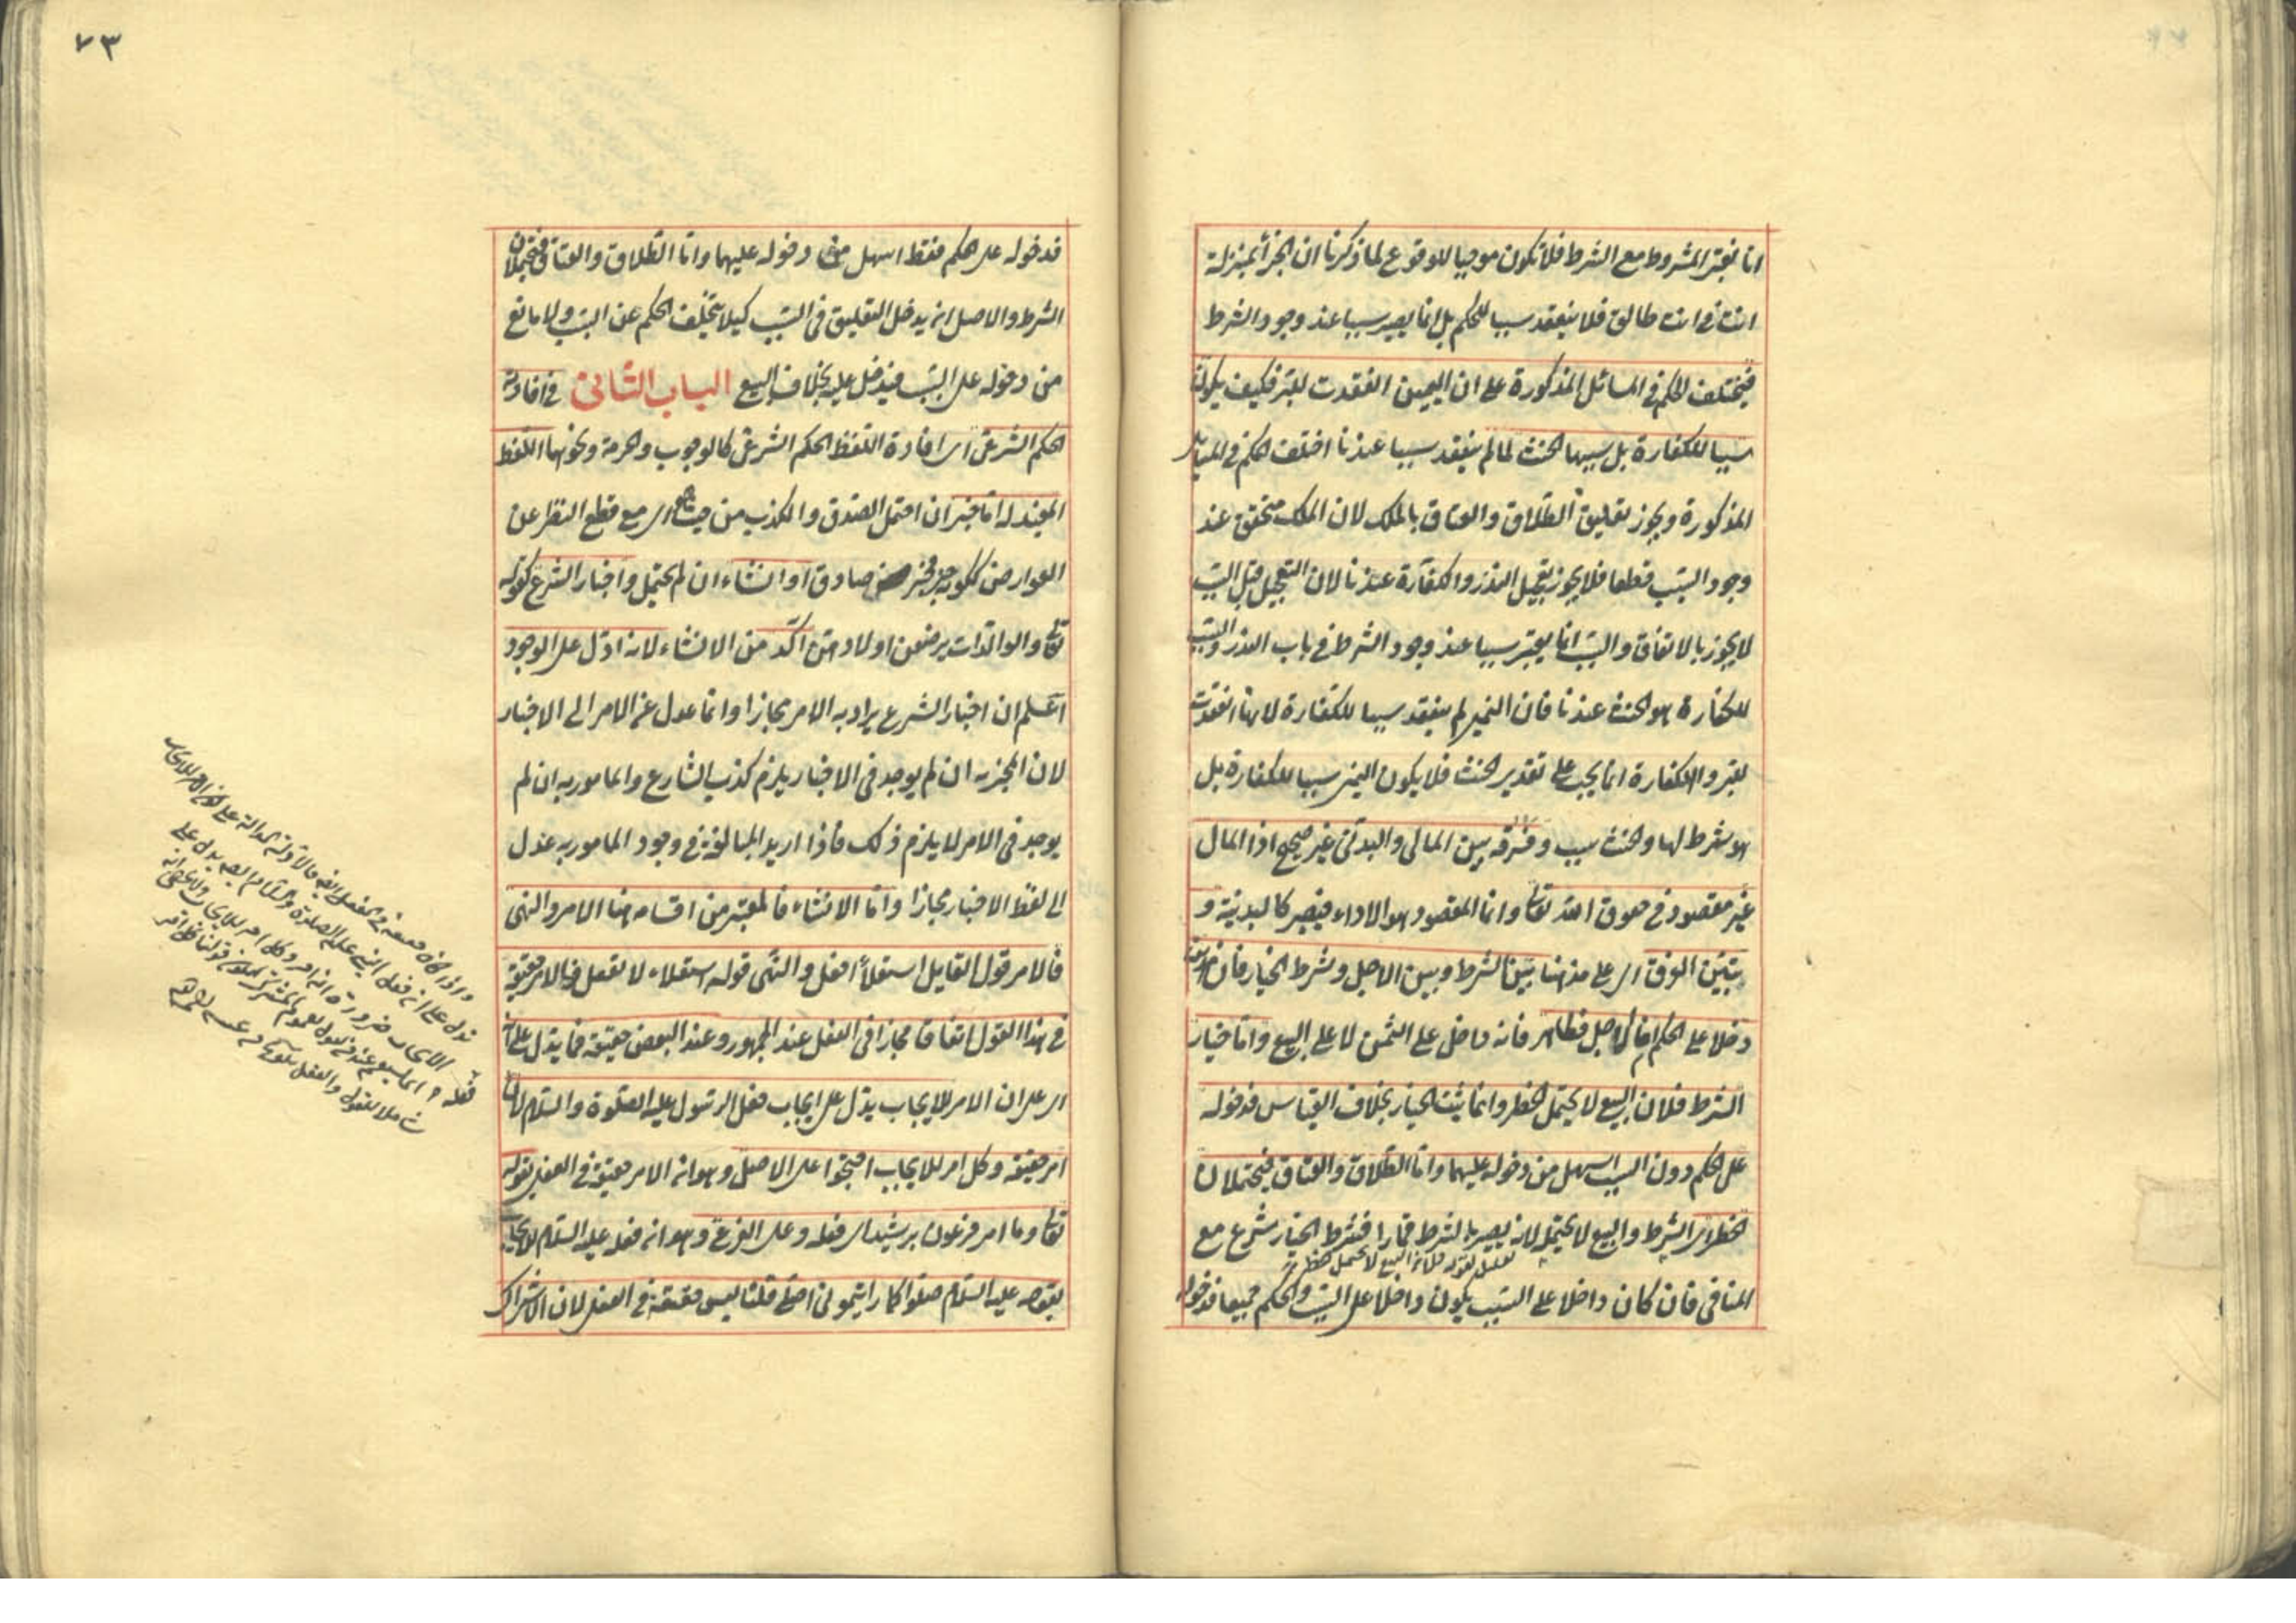 انا نعتبر المشروط مع الشرط فلا تكون موجبا للوقوع لما ذكرنا ان الجزأ بمنزلة
انت في انت طالق فلا ينعقد سببا للحكم بل انما يصير سببا عند وجود الشرط
فيختلف الحكم في المسائل المذكورة على ان اليمين انعقدت للبر فكيف يكون
سببا للكفارة بل سببها الحنث لما لم ينعقد سببا عندنا اختلف الحكم في المسائل
المذكورة ويجوز تعليق الطلاق والعتاق بالملك لان الملك متحقق عند
وجود السبب قطعا فلا يجوز تعجيل النذر والكفارة عندنا لان التعجيل قبل السبب
لا يجوز بالاتفاق والسبب انما يعتبر سببا عند وجود الشرط في باب النذر والسبب
للكفارة هو الحنث عندنا فان اليمين لم ينعقد سببا للكفارة لانها انعقدت
للبر والكفارة انما يجب على تقدير الحنث فلا يكون اليمين سببا للكفارة بل
هو شرط لها والحنث سبب وفرقه بين المالى والبدنى غير صحيح اذا المال
غير مقصود في حقوق الله تعالى وانما المقصود هو الاداء فيصير كالبدنية و
يتبين الفرق اى على مذهبنا بين الشرط وبين الاجل وشرط الخيار فان هذين
دخلا على الحكم اما الاجل فظاهر فانه داخل على الثمن لا على البيع واما خيار
الشرط فلان البيع لا يحتمل الخطر وانما يثبت الخيار بخلاف القياس فدخوله
على الحكم دون السبب اسهل من دخوله عليهما واما الطلاق والعتاق فيحتملان
الخطر اى الشرط والبيع لا يحتمله لانه يصير بالشرط قمارا فشرط الخيار شرع مع
تعليل لقوله فلان البيع لا يحتمل الخطر
المنافى فان كان داخلا على السبب يكون داخلا على السبب والحكم جميعا فدخوله
٧٣
فدخوله على الحكم فقط اسهل من دخوله عليهما واما الطلاق والعتاق فيحتملان
الشرط والاصل ان يدخل التعليق في السبب كيلا يتخلف الحكم عن السبب ولا مانع
من دخوله على السبب فيدخل عليه بخلاف البيع الباب الثانى في افادته
الحكم الشرعى اى افادة اللفظ الحكم الشرعى كالوجوب والحرمة ونحوهما اللفظ
المفيد له اما خبر ان احتمل الصدق والكذب من حيث هو اى مع قطع النظر عن
العوارض ككونه خبر مخبر صادق او انشاء ان لم يحتمل واخبار الشرع كقوله
تعالى والوالدات يرضعن اولادهن آكد من الانشاء لانه ادل على الوجود
اعلم ان اخبار الشرع يراد به الامر مجازا وانما عدل عن الامر الى الاخبار
لان المخبر به ان لم يوجد في الاخبار يلزم كذب الشارع والمامور به ان لم
يوجد في الامر لا يلزم ذلك فاذا اريد المبالغة في وجود المامور به عدل
الى لفظ الاخبار مجازا واما الانشاء فالمعتبر من اقسامه هنا الامر والنهى
فالامر قول القايل استعلاءً افعل والنهى قوله استعلاء لا تفعل والامر حقيقة
في هذا القول اتفاقا مجازا في الفعل عند الجمهور وعند البعض حقيقة فما يدل على
اى على ان الامر للايجاب يدل على ايجاب فعل الرسول عليه الصلوة والسلام لانه
امر حقيقة وكل امر للايجاب احتجوا على الاصل وهو انه الامر حقيقة في الفعل بقوله
تعالى وما امر فرعون برشيد اى فعله وعلى الفرع وهو انه فعله عليه السلام للايجاب
بقوله عليه السلام صلوا كما رايتمونى اصلى قلنا ليس حقيقة في الفعل لان الاشتراك